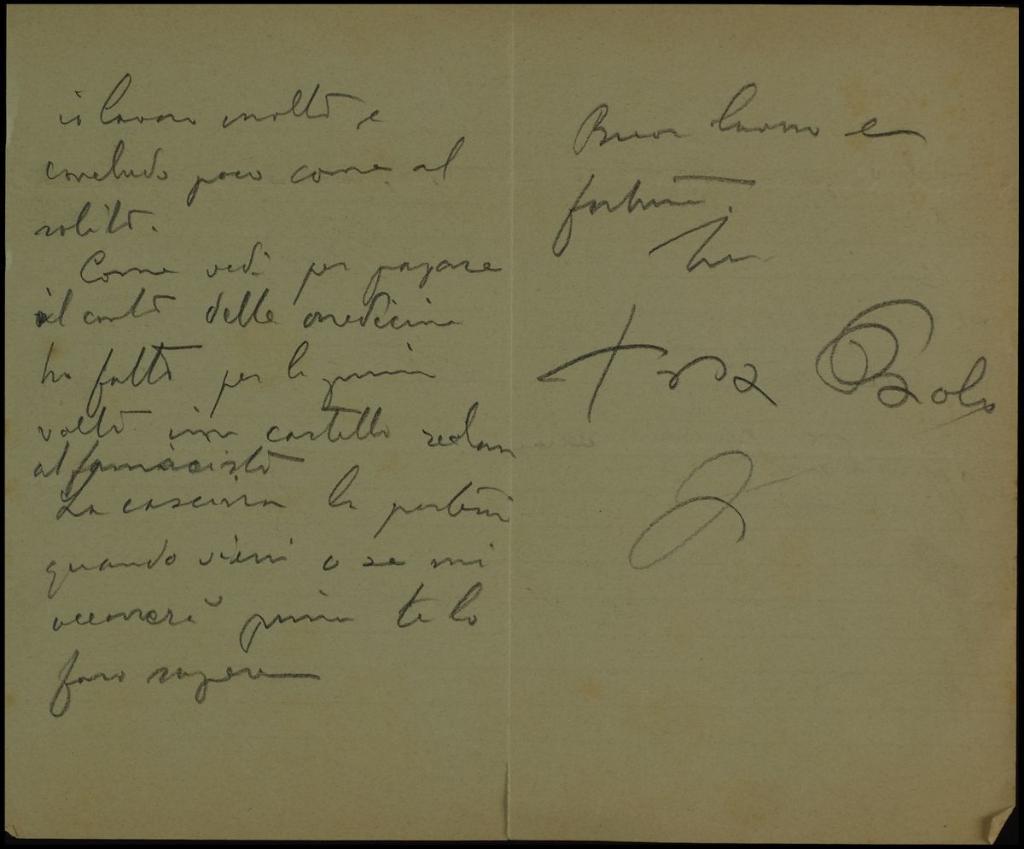 io lavoro molto e
concludo poco come al
solito.
Come vedi per pagare
il conto delle medicine
ho fatto per la prima
volta una
al farmacista
La la porterai
quando vieni o se mi
occorrerà prima te lo
farò sapere
Buon lavoro e
fortuna.
tuo
Paolo